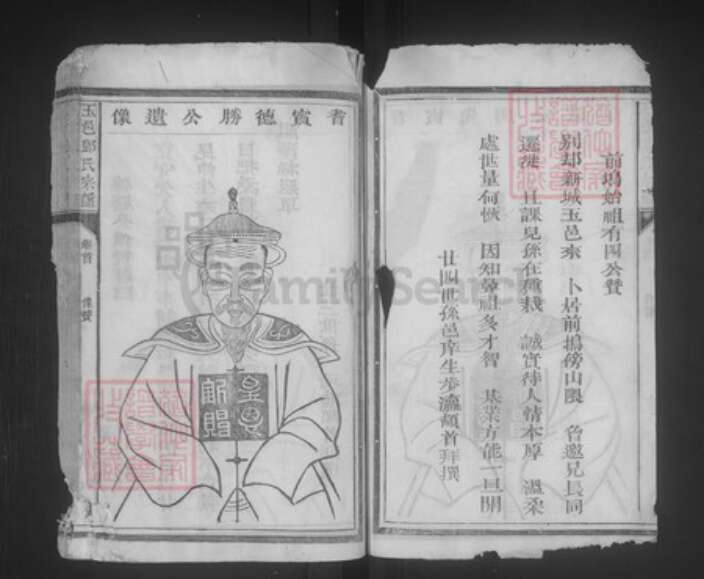 前塢始祖有四公贊
別却新城玉邑來　卜居前塢傍山隈　曾邀兄長同
遷徙　且課兒孫在種栽　誠實待人情本厚　溫柔
處世量何恢　因知肇祖多才智　基業方能一旦開
廿四世孫邑庠生步瀛頓首拜撰
耆賓德勝公遺像
皇恩
欽賜
玉邑鄭氏宗譜
像贊
FamilySearch